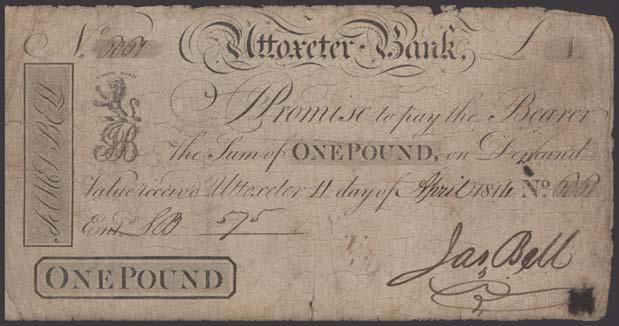 No. Uttoxeter Bank, £ 1
CARPE DIEM
I Promise to pay the Bearer
the Sum of ONE POUND, on Demand
Value receiv'd Uttoxeter 11 day of April 1814 No.
Entd. 575
Jas Bell
ONE POUND